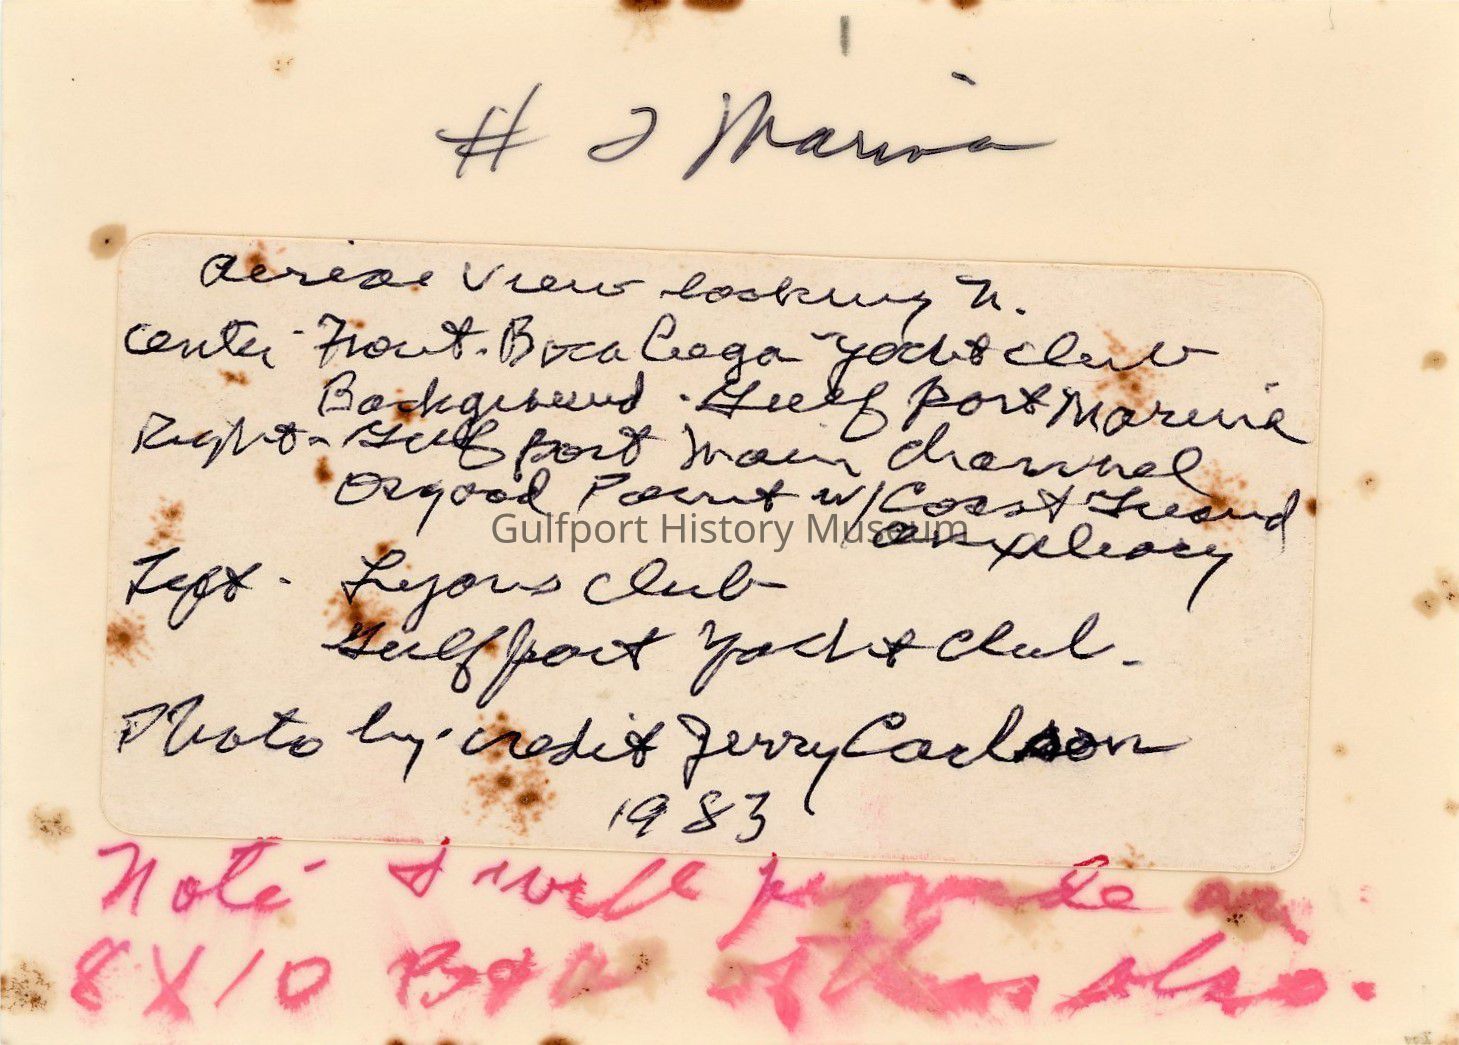 # 2 Marina
Aerial View looking N.
Center - Front - Boca Ciega Yacht Club
Background - Gulfport Marina
Right - Gulfport Main Channel
Osgood Point w/Coast Guard
auxiliary
Gulfport History Museum
Left - Lyons Club
Gulfport Yacht Club.
Photo by - credit Jerry Carlson
1983
Note - I will provide an
8X10 B&W of this also.